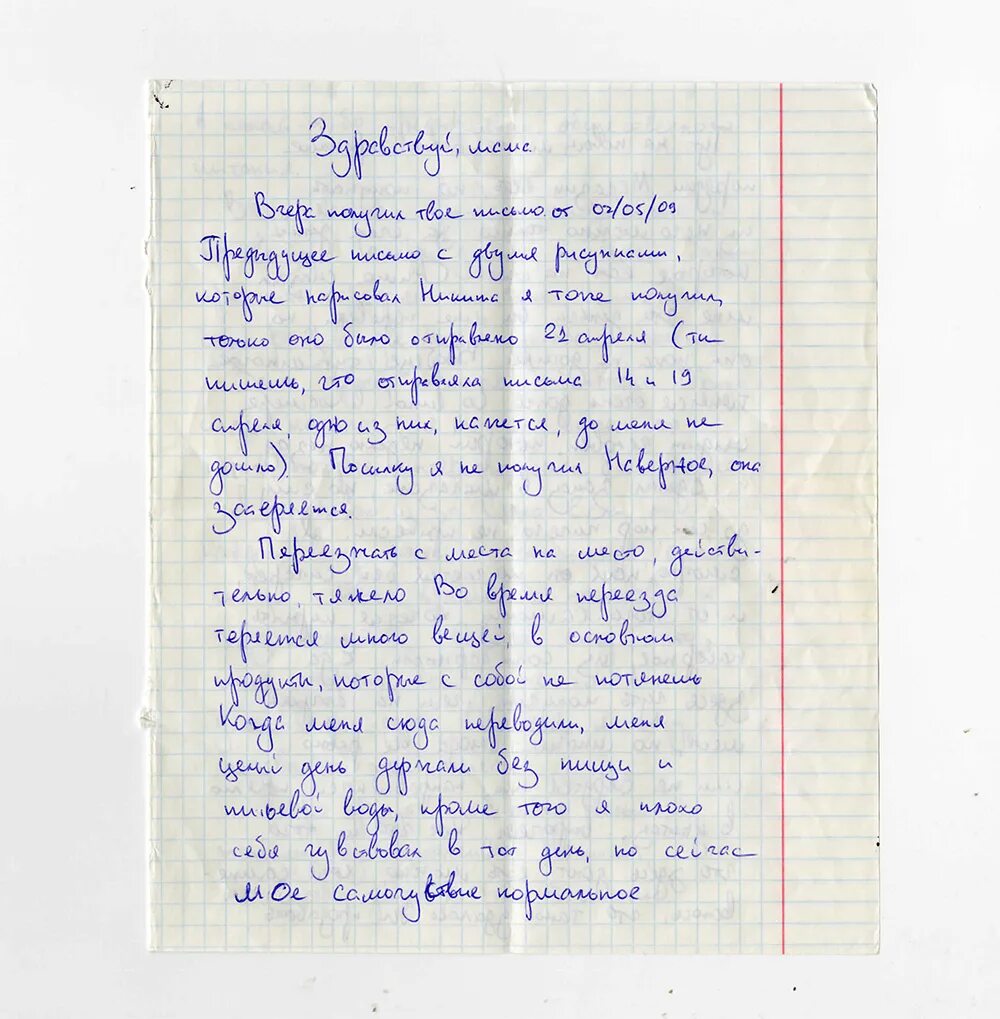 Здравствуй, мама
Вчера получил твоё письмо от 02/05/09
Предыдущее письмо с двумя рисунками,
которые нарисовал Никита я тоже получил,
только оно было отправлено 21 апреля (ты
пишешь, что отправляла письма 14 и 19
апреля, одно из них, кажется, до меня не
дошло). Посылку я не получил Наверное, она
затеряется.
Переезжать с места на место, действи-
тельно, тяжело Во время переезда
теряется много вещей, в основном
продукты, которые с собой не потянешь
Когда меня сюда переводили, меня
целый день держали без пищи и
питьевой воды, кроме того я плохо
себя чувствовал в тот день, но сейчас
мое самочувствие нормальное